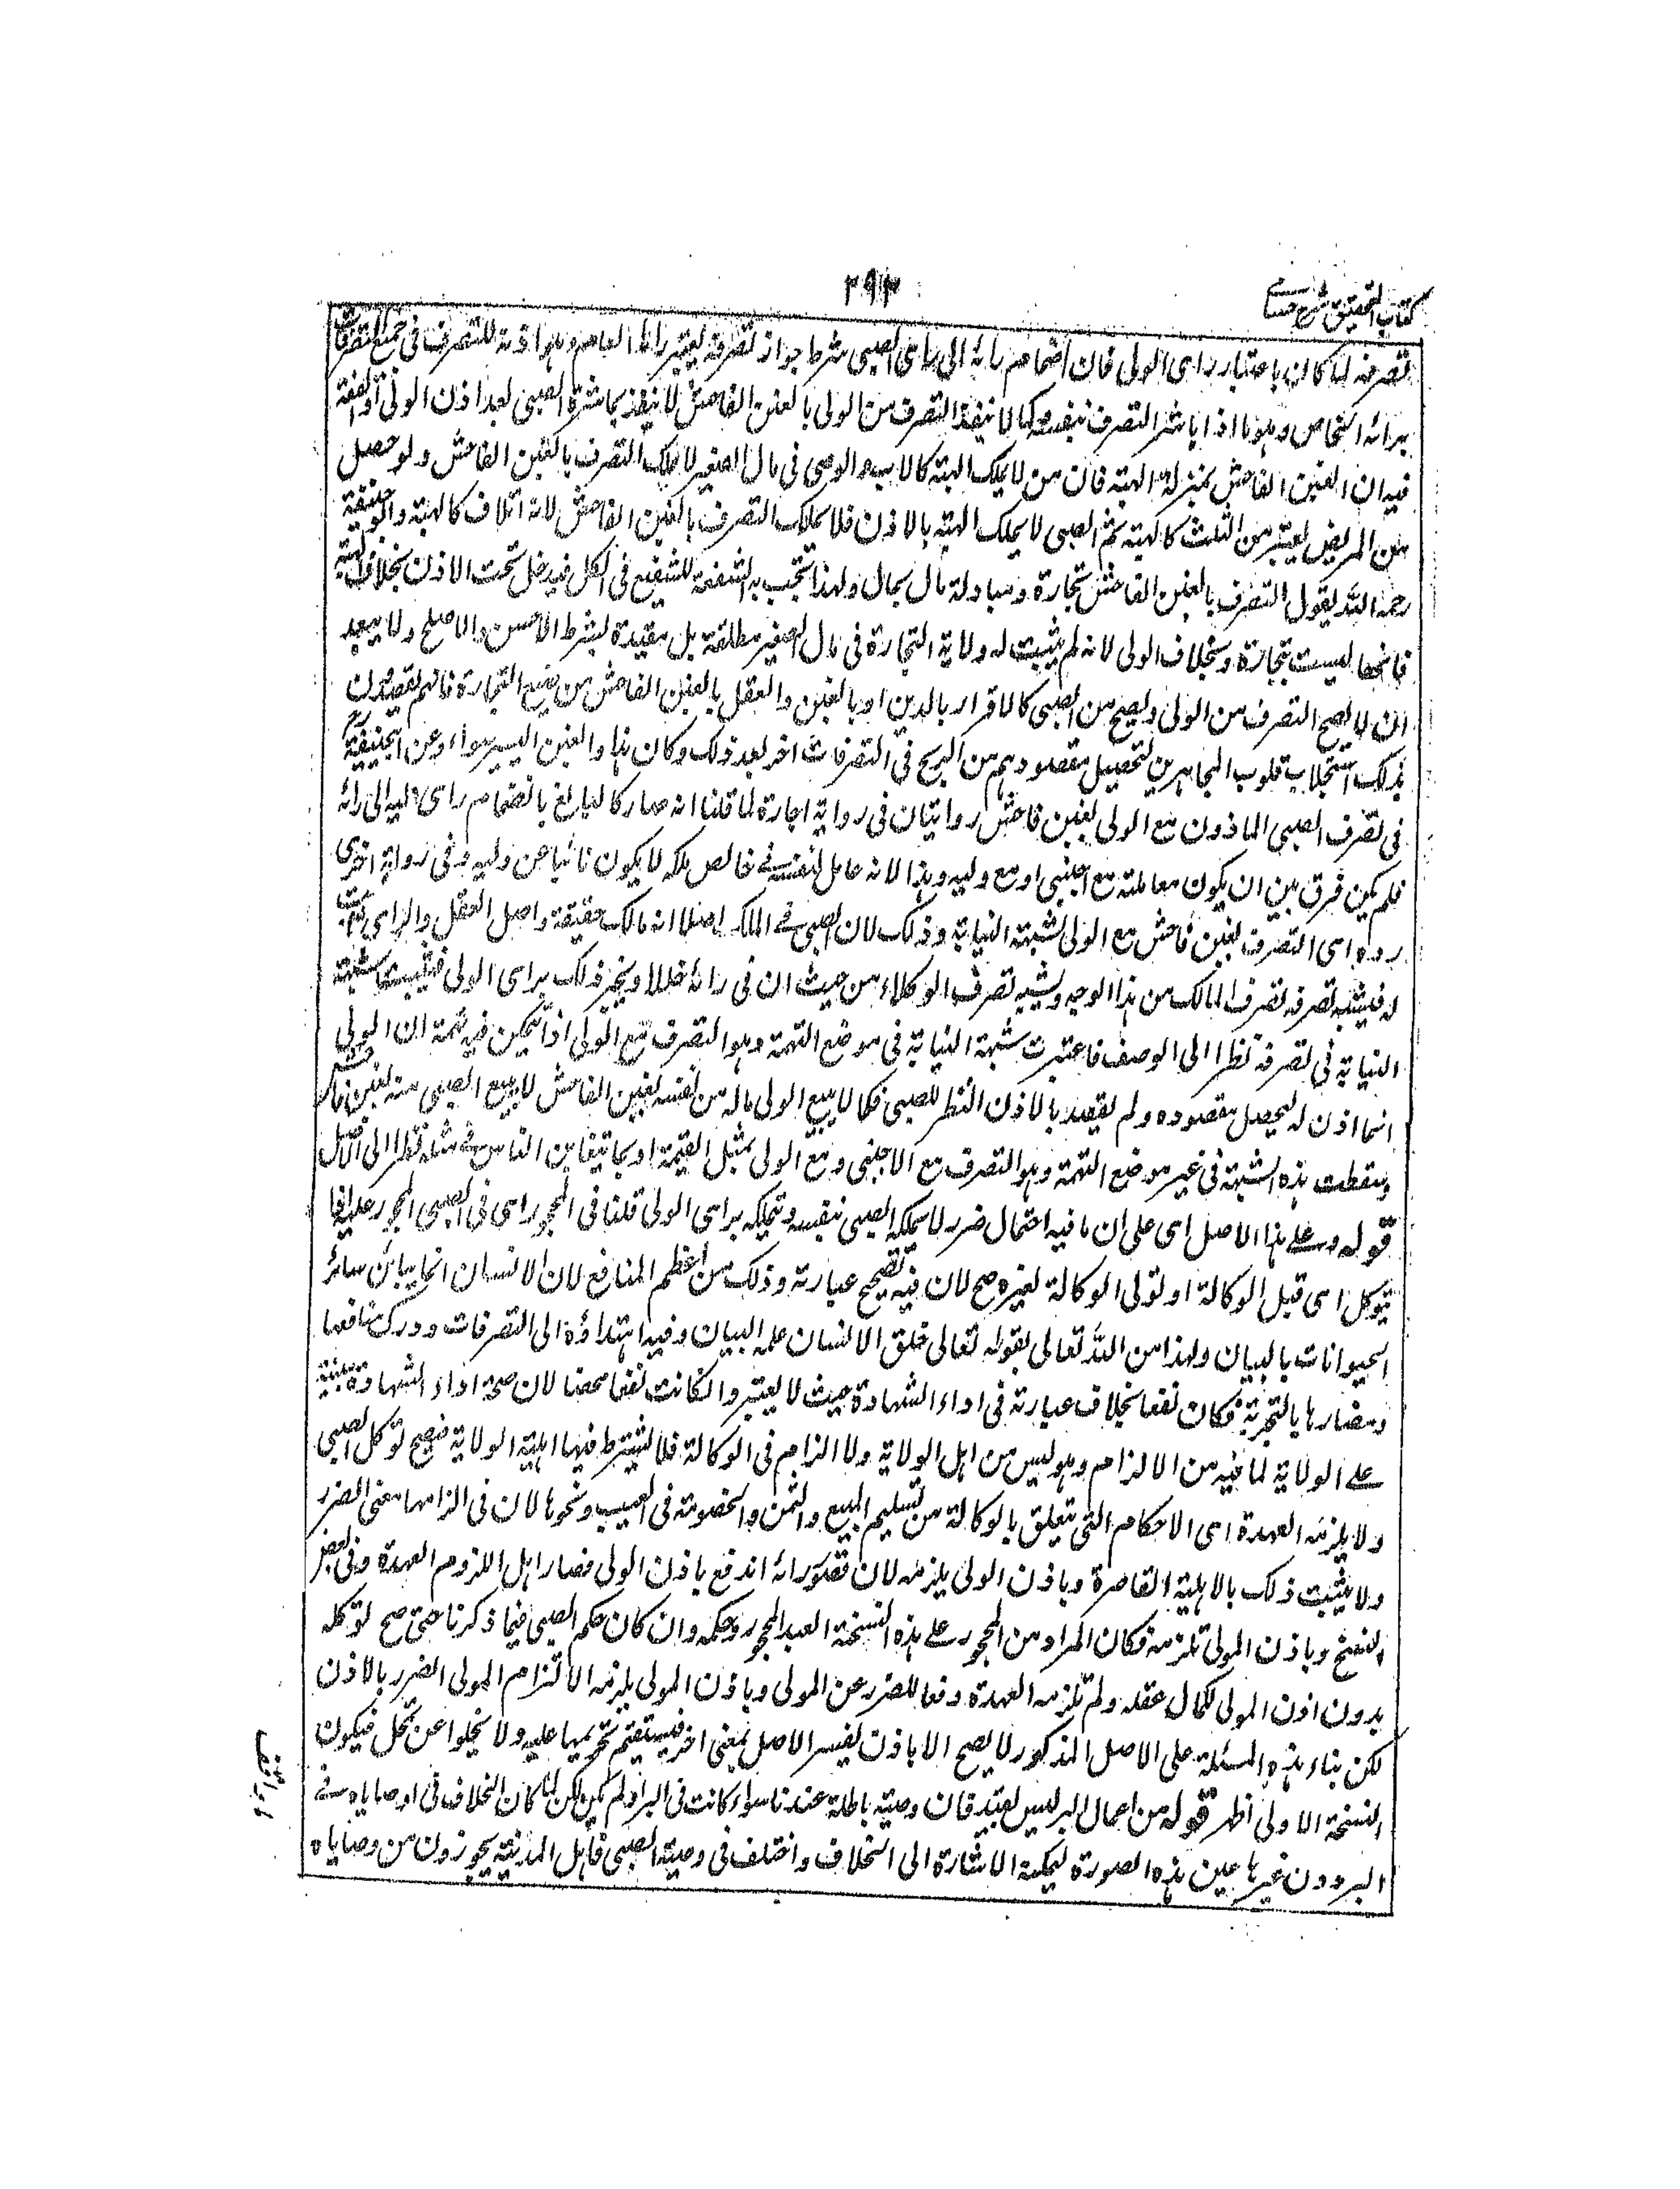 كتاب التحقيق شرح حسامي
٢٩٣
تصرفه لما كان باعتبار راى الولى فان انضمام رائه الى راى الصبى شرط جواز تصرفه يعتبر رائه العام وهو اذنه للتصرف فى جميع التصرفات
برائه الخاص وهو ما اذا باشر التصرف بنفسه كما لا ينفذ التصرف من الولى بالغبن الفاحش لا ينفذ بمباشرة الصبى بعد اذن الولى او الفقه
فيه ان الغبن الفاحش بمنزلة الهبة فان من لا يملك الهبة كالاب والوصى فى مال الصغير لا يملك التصرف بالغبن الفاحش ولو حصل
من المريض يعتبر من الثلث كالهبة ثم الصبى لا يملك الهبة بالاذن فلا يملك التصرف بالغبن الفاحش لانه اتلاف كالهبة وابو حنيفة
رحمه الله يقول التصرف بالغبن الفاحش تجارة ومبادلة مال بمال ولهذا تجب به الشفعة للشفيع فى الكل فيدخل تحت الاذن بخلاف الهبة
فانها ليست بتجارة وبخلاف الولى لانه لم يثبت له ولاية التجارة فى مال الصغير مطلقة بل مقيدة بشرط الاحسن والاصلح ولا يبعد
ان لا يصح التصرف من الولى ويصح من الصبى كالاقرار بالدين او بالغبن والعقل بالغبن الفاحش من صنيع التجارة فانهم يقصدون
بذلك استجلاب قلوب المجاهرين لتحصيل مقصودهم من الربح فى التصرفات اخر بعد ذلك وكان هذا والغبن اليسير سواء وعن ابيحنيفة
فى تصرف الصبى الماذون مع الولى بغبن فاحش روايتان فى رواية اجازة لما قلنا انه صار كالبالغ بانضمام راى وليه الى رائه
فلم يكن فرق بين ان يكون معاملته مع اجنبى او مع وليه وهذا لانه عامل لنفسه فى خالص ملكه لا يكون نائبا عن وليه وفى رواية اخرى
رده اى التصرف بغبن فاحش مع الولى لشبهة النيابة وذلك لان الصبى فى الملك اصلا انه مالك حقيقة واصل العقل والراى ثابت
له فيشبه تصرفه تصرف المالك من هذا الوجه ويشبه تصرف الوكلاء من حيث ان فى رائه خللا ويجبر ذلك براى الولى فيثبت شبهة
النيابة فى تصرفه نظرا الى الوصف فاعتبرت شبهة النيابة فى موضع التهمة وهو التصرف مع الولى اذ تمكن فيه تهمة ان الولى
انما اذن له ليحصل مقصوده ولم يقصد بالاذن النظر للصبى فكما لا يبيع الولى ماله من نفسه بغبن الفاحش لا يبيع الصبى منه بغبن فاحش
وسقطت هذه الشبهة فى غير موضع التهمة وهو التصرف مع الاجنبى ومع الولى بمثل القيمة او بما يتغابن الناس فى مثله نظرا الى الاصل
قوله وعلى هذا الاصل اى على ان ما فيه احتمال ضرر لا يملكه الصبى بنفسه ويملكه براى الولى قلنا فى المحجور اى فى الصبى المحجور عليه اذا
توكل اى قبل الوكالة او تولى الوكالة لغيره صح لان فيه تصحيح عبارته وذلك من اعظم المنافع لان الانسان انما يباين سائر
الحيوانات بالبيان ولهذا من الله تعالى بقوله تعالى خلق الانسان علمه البيان وفيه اهتداؤه الى التصرفات ودرك منافعها
ومضارها بالتجربة فكان نفعا بخلاف عبارته فى اداء الشهادة حيث لا يعتبر وان كانت نفعا محضا لان صحة اداء الشهادة مبنية
على الولاية لما فيه من الالزام وهو ليس من اهل الولاية ولا الزام فى الوكالة فلا يشترط فيها اهلية الولاية فيصح توكل الصبى
ولا يلزمه العهدة اى الاحكام التى تتعلق بالوكالة من تسليم المبيع والثمن والخصومة فى العيب ونحوها لان فى الزامها معنى الضرر
ولا يثبت ذلك بالاهلية القاصرة وباذن الولى يلزمه لان قصور رائه اندفع باذن الولى فصار اهل للزوم العهدة وفى بعض
النسخ وباذن المولى تلزمه فكان المراد من المحجور على هذه النسخة العبد المحجور وحكمه وان كان حكم الصبى فيما ذكرنا حتى صح توكله
بدون اذن المولى لكمال عقله ولم تلزمه العهدة دفعا للضرر عن المولى وباذن المولى يلزمه لالتزام المولى الضرر بالاذن
لكن بناء هذه المسئلة على الاصل المذكور لا يصح الا باذن يفسر الاصل بمعنى اخر فيستقيم تخريجها عليه ولا يخلوا عن تمحل فيكون
النسخة الاولى اظهر قوله من اعمال البر ليس بقيد فان وصيته باطلة عندنا سواء كانت فى البر او لم يكن لكن لما كان الخلاف فى وصاياه فى
البر دون غيرها عين هذه الصورة ليمكنه الاشارة الى الخلاف واختلف فى وصية الصبى فاهل المدينة يجوزون من وصاياه